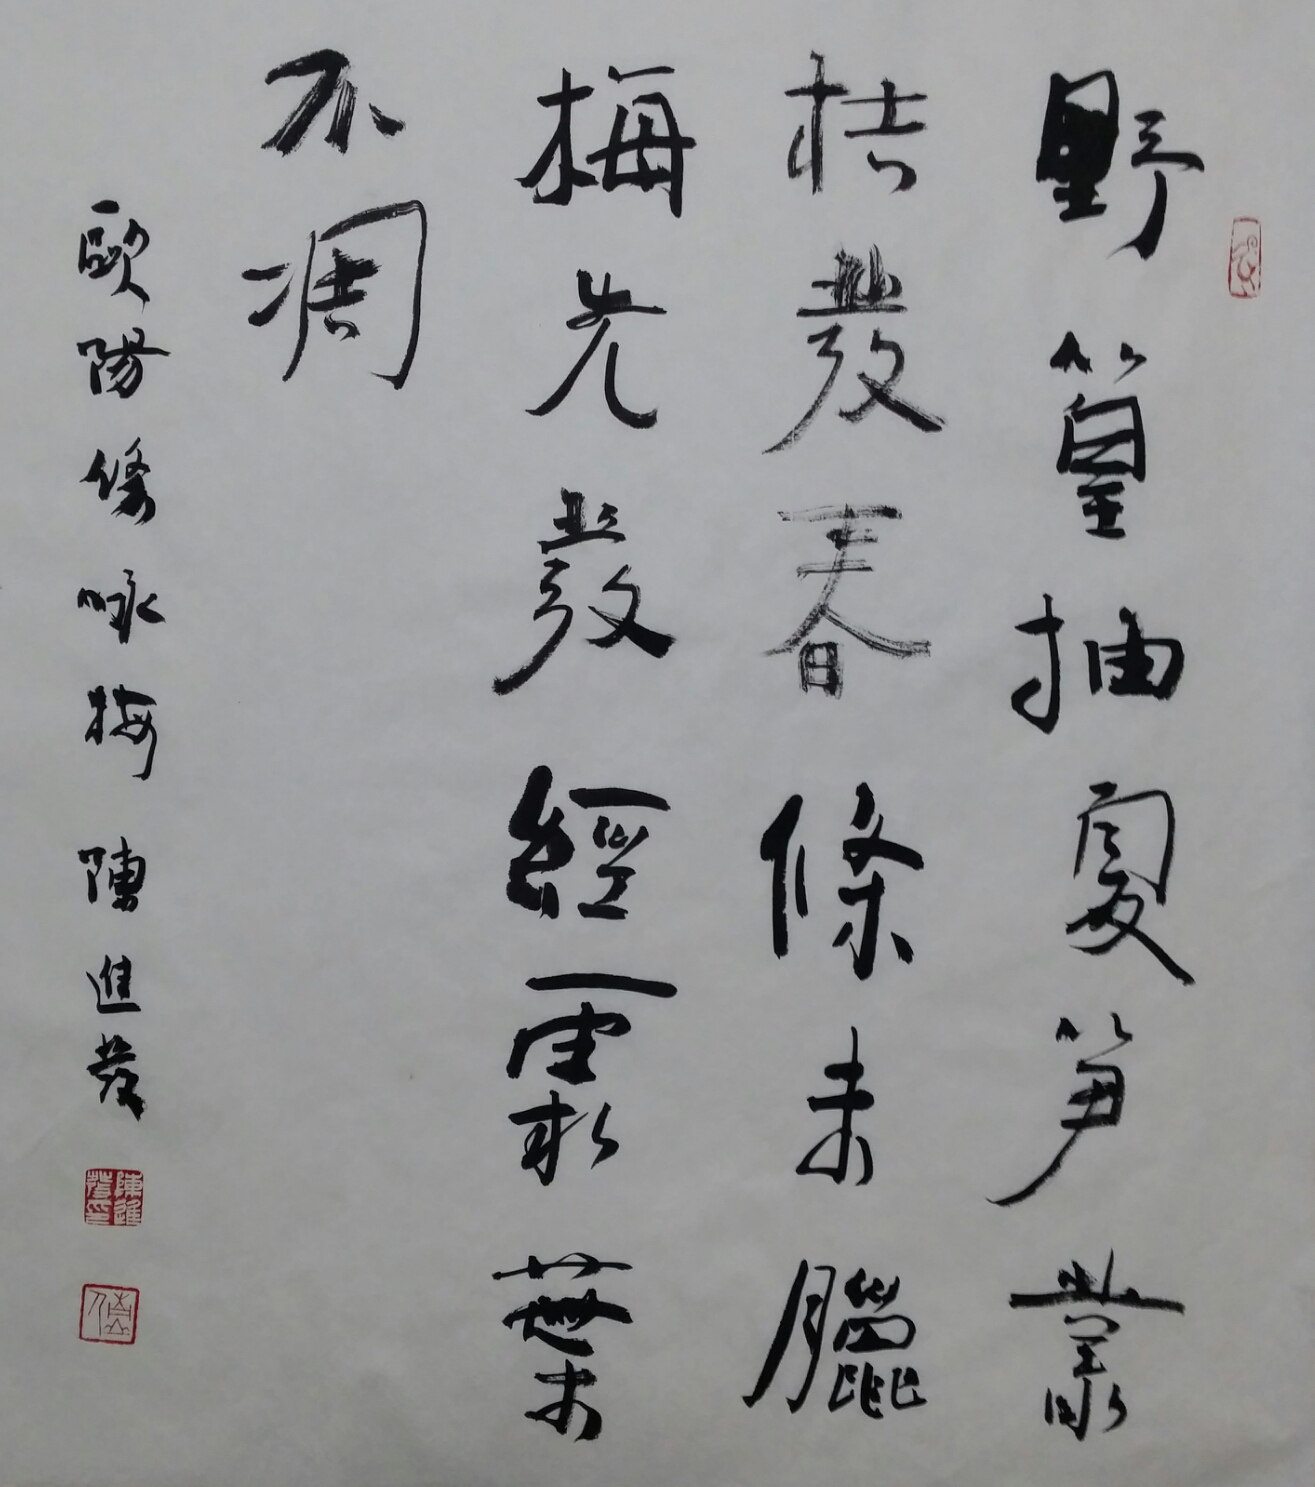 野篁抽夏笋叢
桔發春條未臘
梅先發經霜葉
不凋
歐陽修咏梅 陳進發
陳進發印